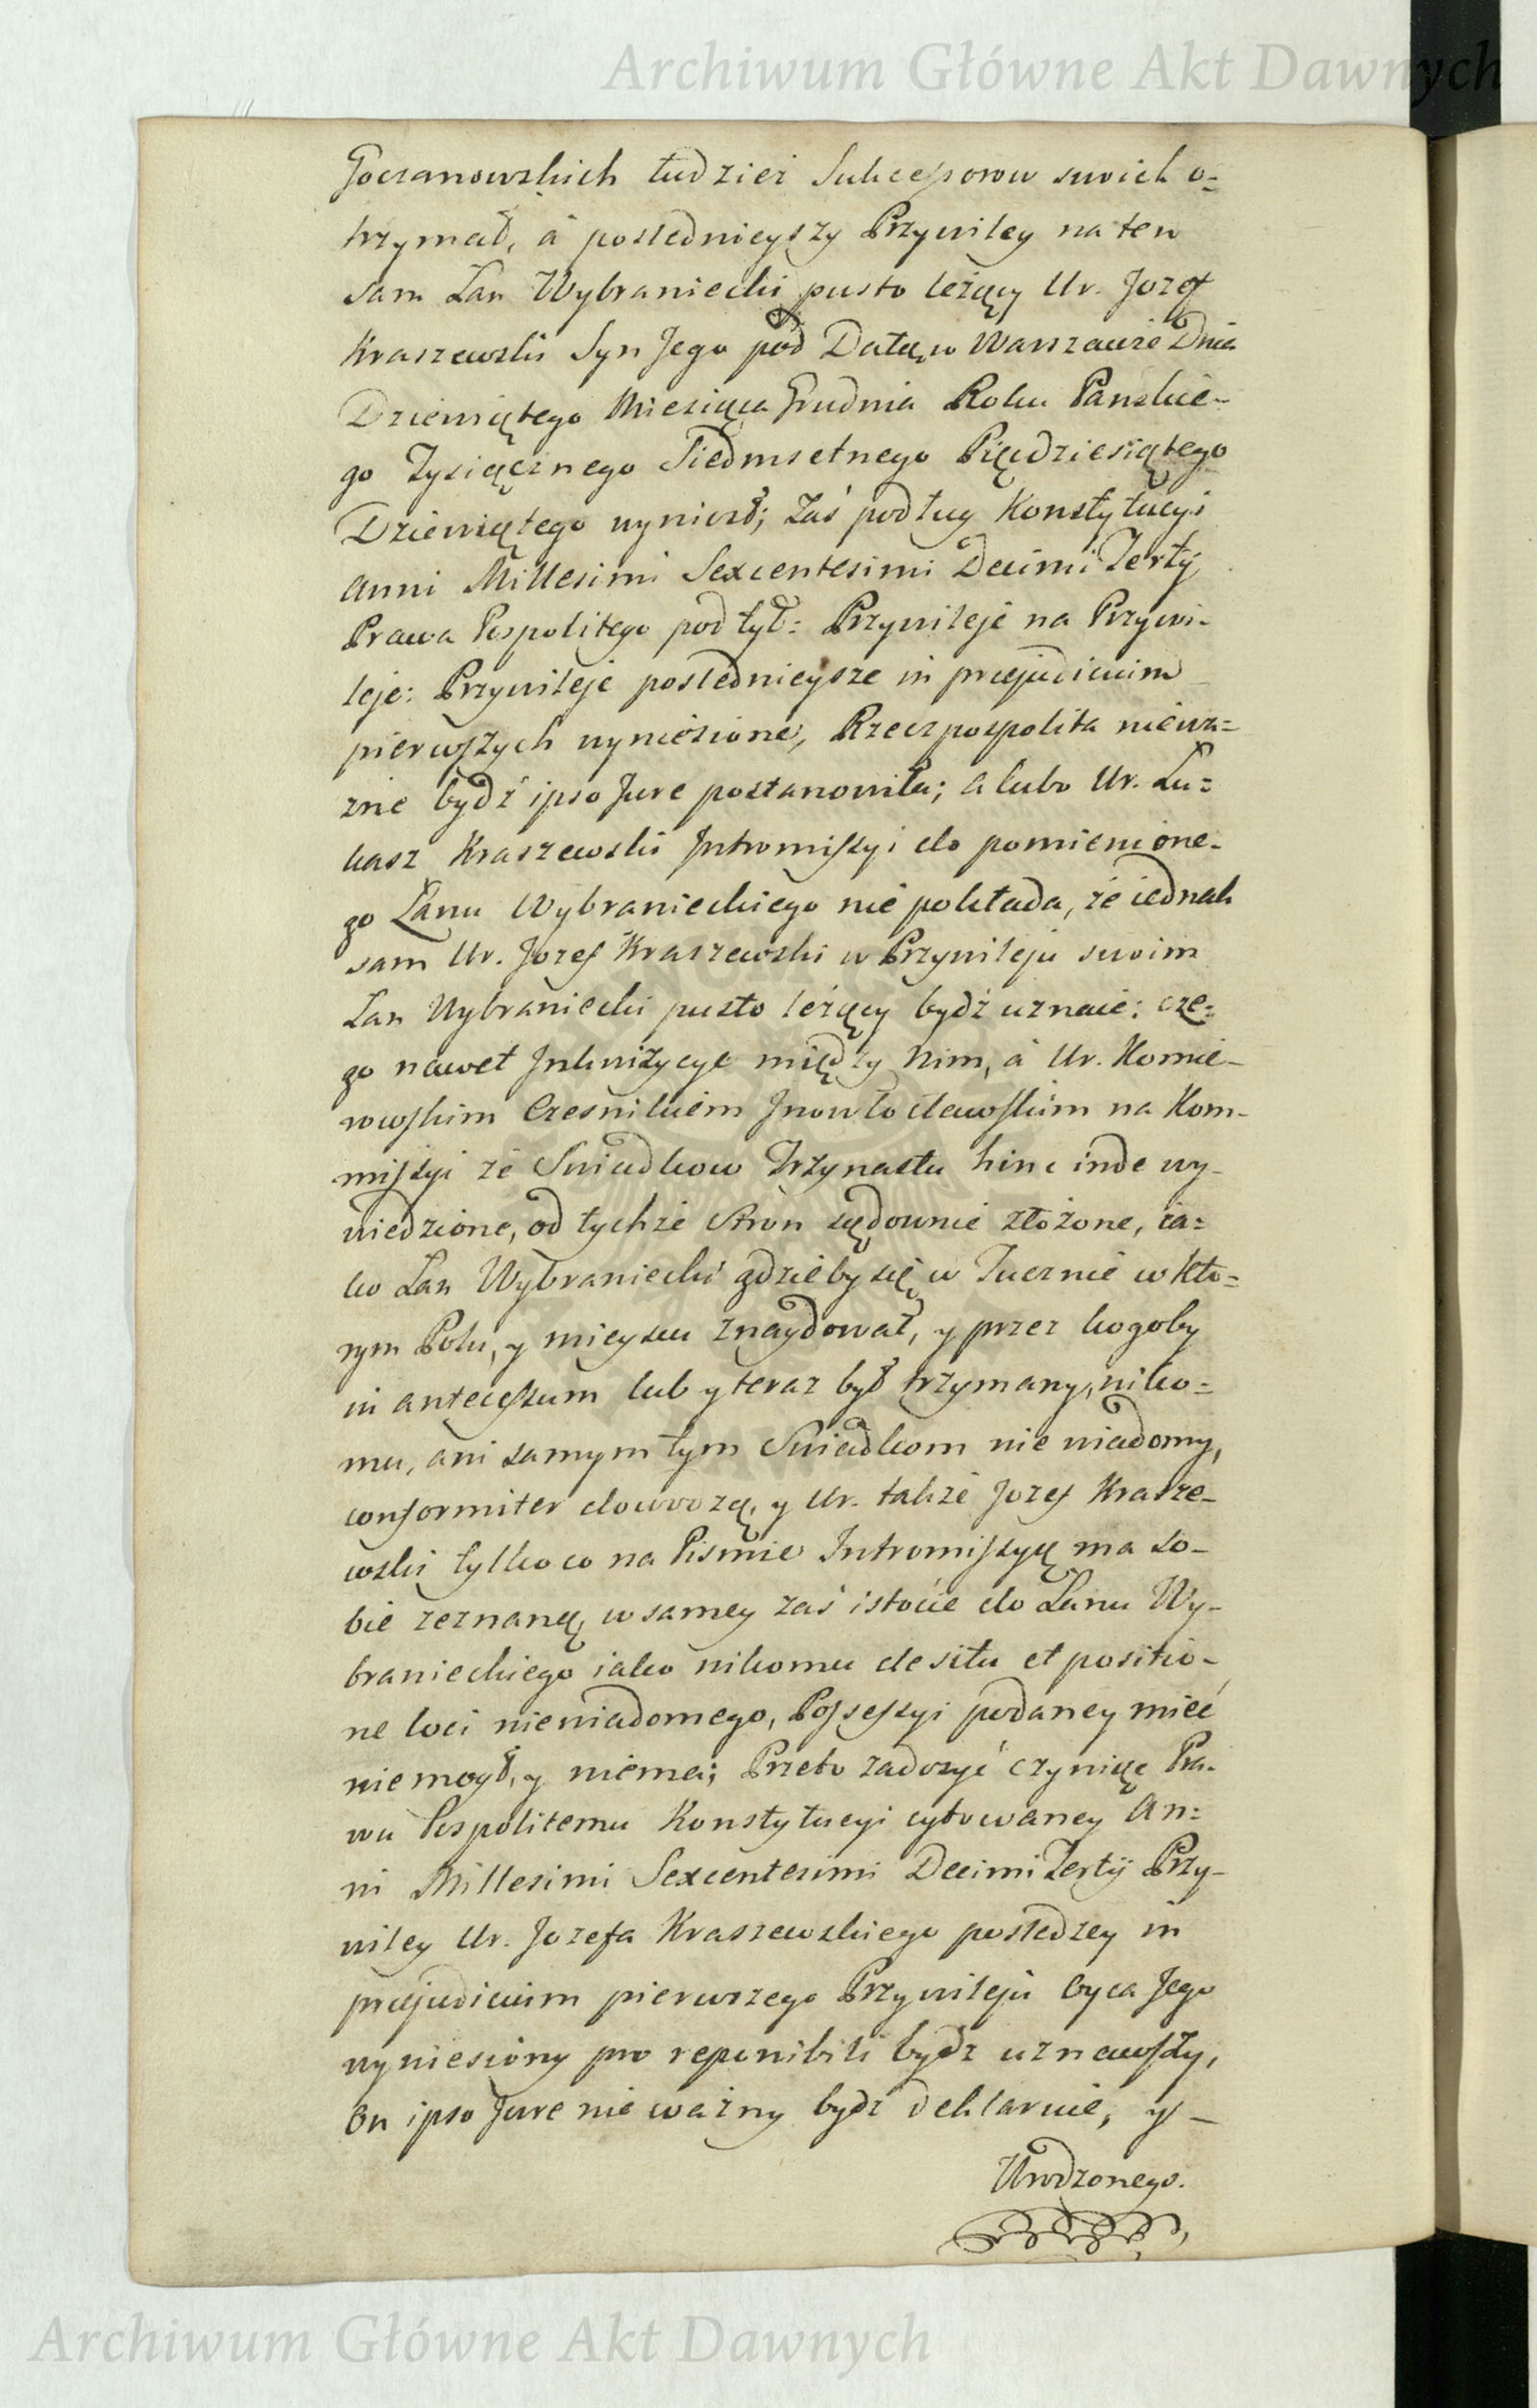 Archiwum Główne Akt Dawnych
Goczanowskich tudzież Sukcessorow swoich o=
trzymał, á poslednieyszy Przywiley na ten
sam Łan Wybraniecki pusto leżący Ur. Jozef
Kraszewski Syn Jego pod Datą w Warszawie Dnia
Dziewiątego Miesiąca Grudnia Roku Pańskie-
go Tysiącznego Siedmsetnego Pięćdziesiątego
Dziewiątego wyniosł; Zaś podług Konstytucyi
Anni Millesimi Sexcentesimi Decimi Tertij
Prawa Pospolitego pod tyt: Przywileje na Przywi-
leje: Przywileje poslednieysze in praejudicium
pierwszych wyniesione, Rzeczpospolita niewa=
żne bydź ipso Jure postanowiła; a lubo Ur. Łu=
kasz Kraszewski Intromissyi do pomienione-
go Łanu Wybranieckiego nie pokłada, że iednak
sam Ur. Jozef Kraszewski w Przywileju swoim
Łan Wybraniecki pusto leżący bydź uznaie: cze=
go nawet Inkwizycye między Nim, á Ur. Komie-
rowskim Czesnikiem Inowłocławskim na Kom-
missyi ze Swiadkow Trzynastu hinc inde wy-
wiedzione, od tychże Stron sądownie złożone, ia=
ko Łan Wybraniecki gdzieby się w Tucznie w kto=
rym Polu, y mieyscu znaydował, y przez kogoby
in antecessum lub y teraz był trzymany, niko=
mu, ani samym tym Swiadkom nie wiadomy,
conformiter dowodzą, y Ur. także Jozef Krasze-
wski tylko co na Pismie Intromissyą ma so-
bie zeznaną, w samey zaś istocie do Łanu Wy-
branieckiego iako nikomu de situ et positio-
ne loci niewiadomego, Possessyi podaney mieć
niemogł, y niema; Przeto zadosyć czyniąc Pra-
wu Pospolitemu Konstytucyi cytowaney An=
ni Millesimi Sexcentesimi Decimi Tertij Przy-
wiley Ur. Jozefa Kraszewskiego posledzey in
praejudicium pierwszego Przywileju Oyca Jego
wyniesiony pro reponibili bydź uznawszy,
On ipso Jure nie ważny bydź deklaruie, y -
Urodzonego.
Archiwum Główne Akt Dawnych